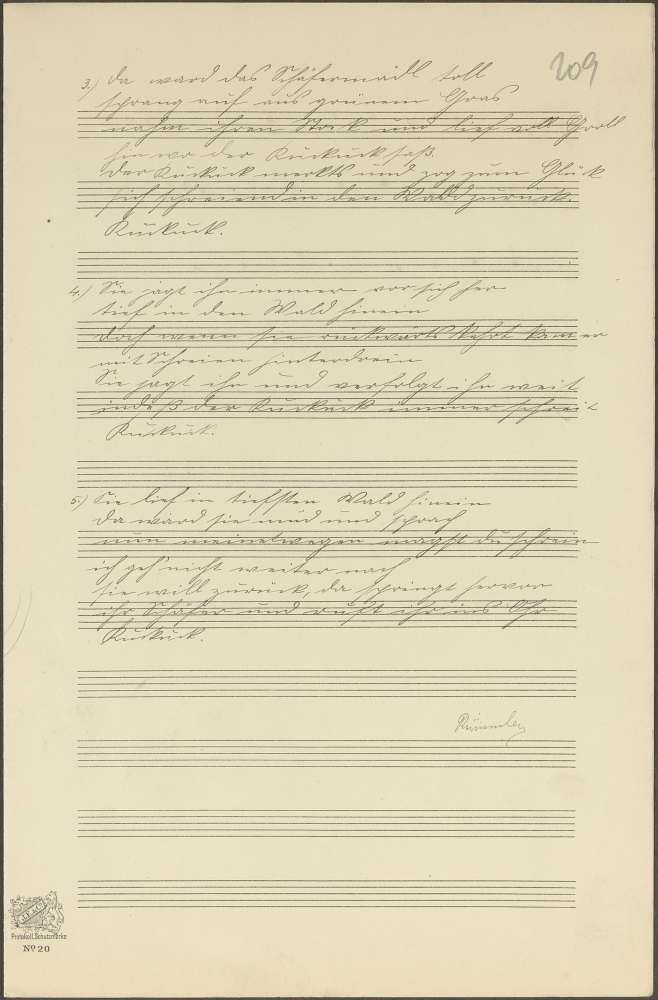 209
3.) Da ward das Schäfermädl toll
sprang auf aus grünem Gras
nahm ihren Stock und lief voll Groll
hin wo der Kuckuck saß.
Der Kuckuck merkts und zog zum Glück
sich schreiend in den Wald zurück.
Kuckuck.
4.) Sie jagt ihn immer vor sich her
tief in den Wald hinein
doch wenn sie rückwärts kehrt kam er
mit Schreien hinterdrein
Sie jagt ihn und verfolgt ihn weit
indeß der Kuckuck immer schreit
Kuckuck.
5.) Sie lief in tiefsten Wald hinein
da ward sie müd und sprach
nun meinetwegen magst du schrein
ich geh' nicht weiter nach
sie will zurück, da springt hervor
ihr Schäfer und ruft ihr ins Ohr
Kuckuck.
J.E.&C°
Protokoll. Schutzmarke
No 20